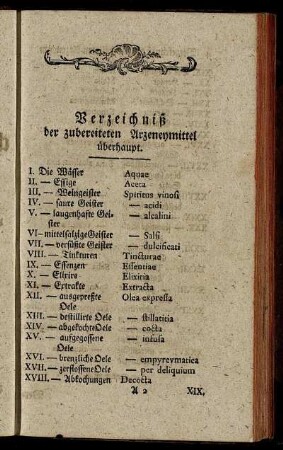 Verzeichniß
der zubereiteten Arzeneymittel
überhaupt.
I. Die Wässer Aquae
II. — Essige Aceta
III. — Weingeister Spiritus vinosi
IV. — saure Geister — acidi
V. — laugenhafte Gei-
ster — alcalini
VI — mittelsalzige Geister — Salsi
VII. — versüßte Geister — dulcificati
VIII. — Tinkturen Tincturae
IX. — Essenzen Essentiae
X. — Elixire Elixiria
XI. — Extrakte Extracta
XII. — ausgepreßte Olea expressa
Oele
XIII. — destillirte Oele — stillatitia
XIV. — abgekochte Oele — cocta
XV. — aufgegossene — infusa
Oele
XVI. — brenzliche Oele — empyrevmatica
XVII. — zerflossene Oele — per deliquium
XVIII. — Abkochungen Decocta
A 2 XIX.